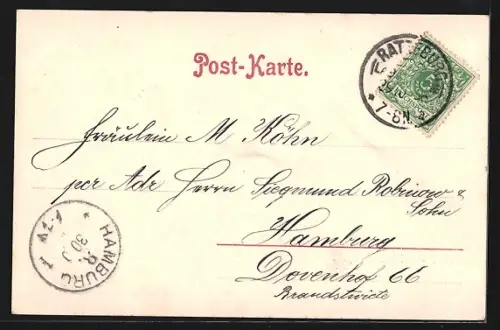 Post-Karte.
RATZEBURG
7-8N.
Fräulein M Köhn
per Adr Herrn Siegmund Robinow &
Sohn
Hamburg
Dovenhof 66
Brandstwiete
HAMBURG
1-2V
R.
30